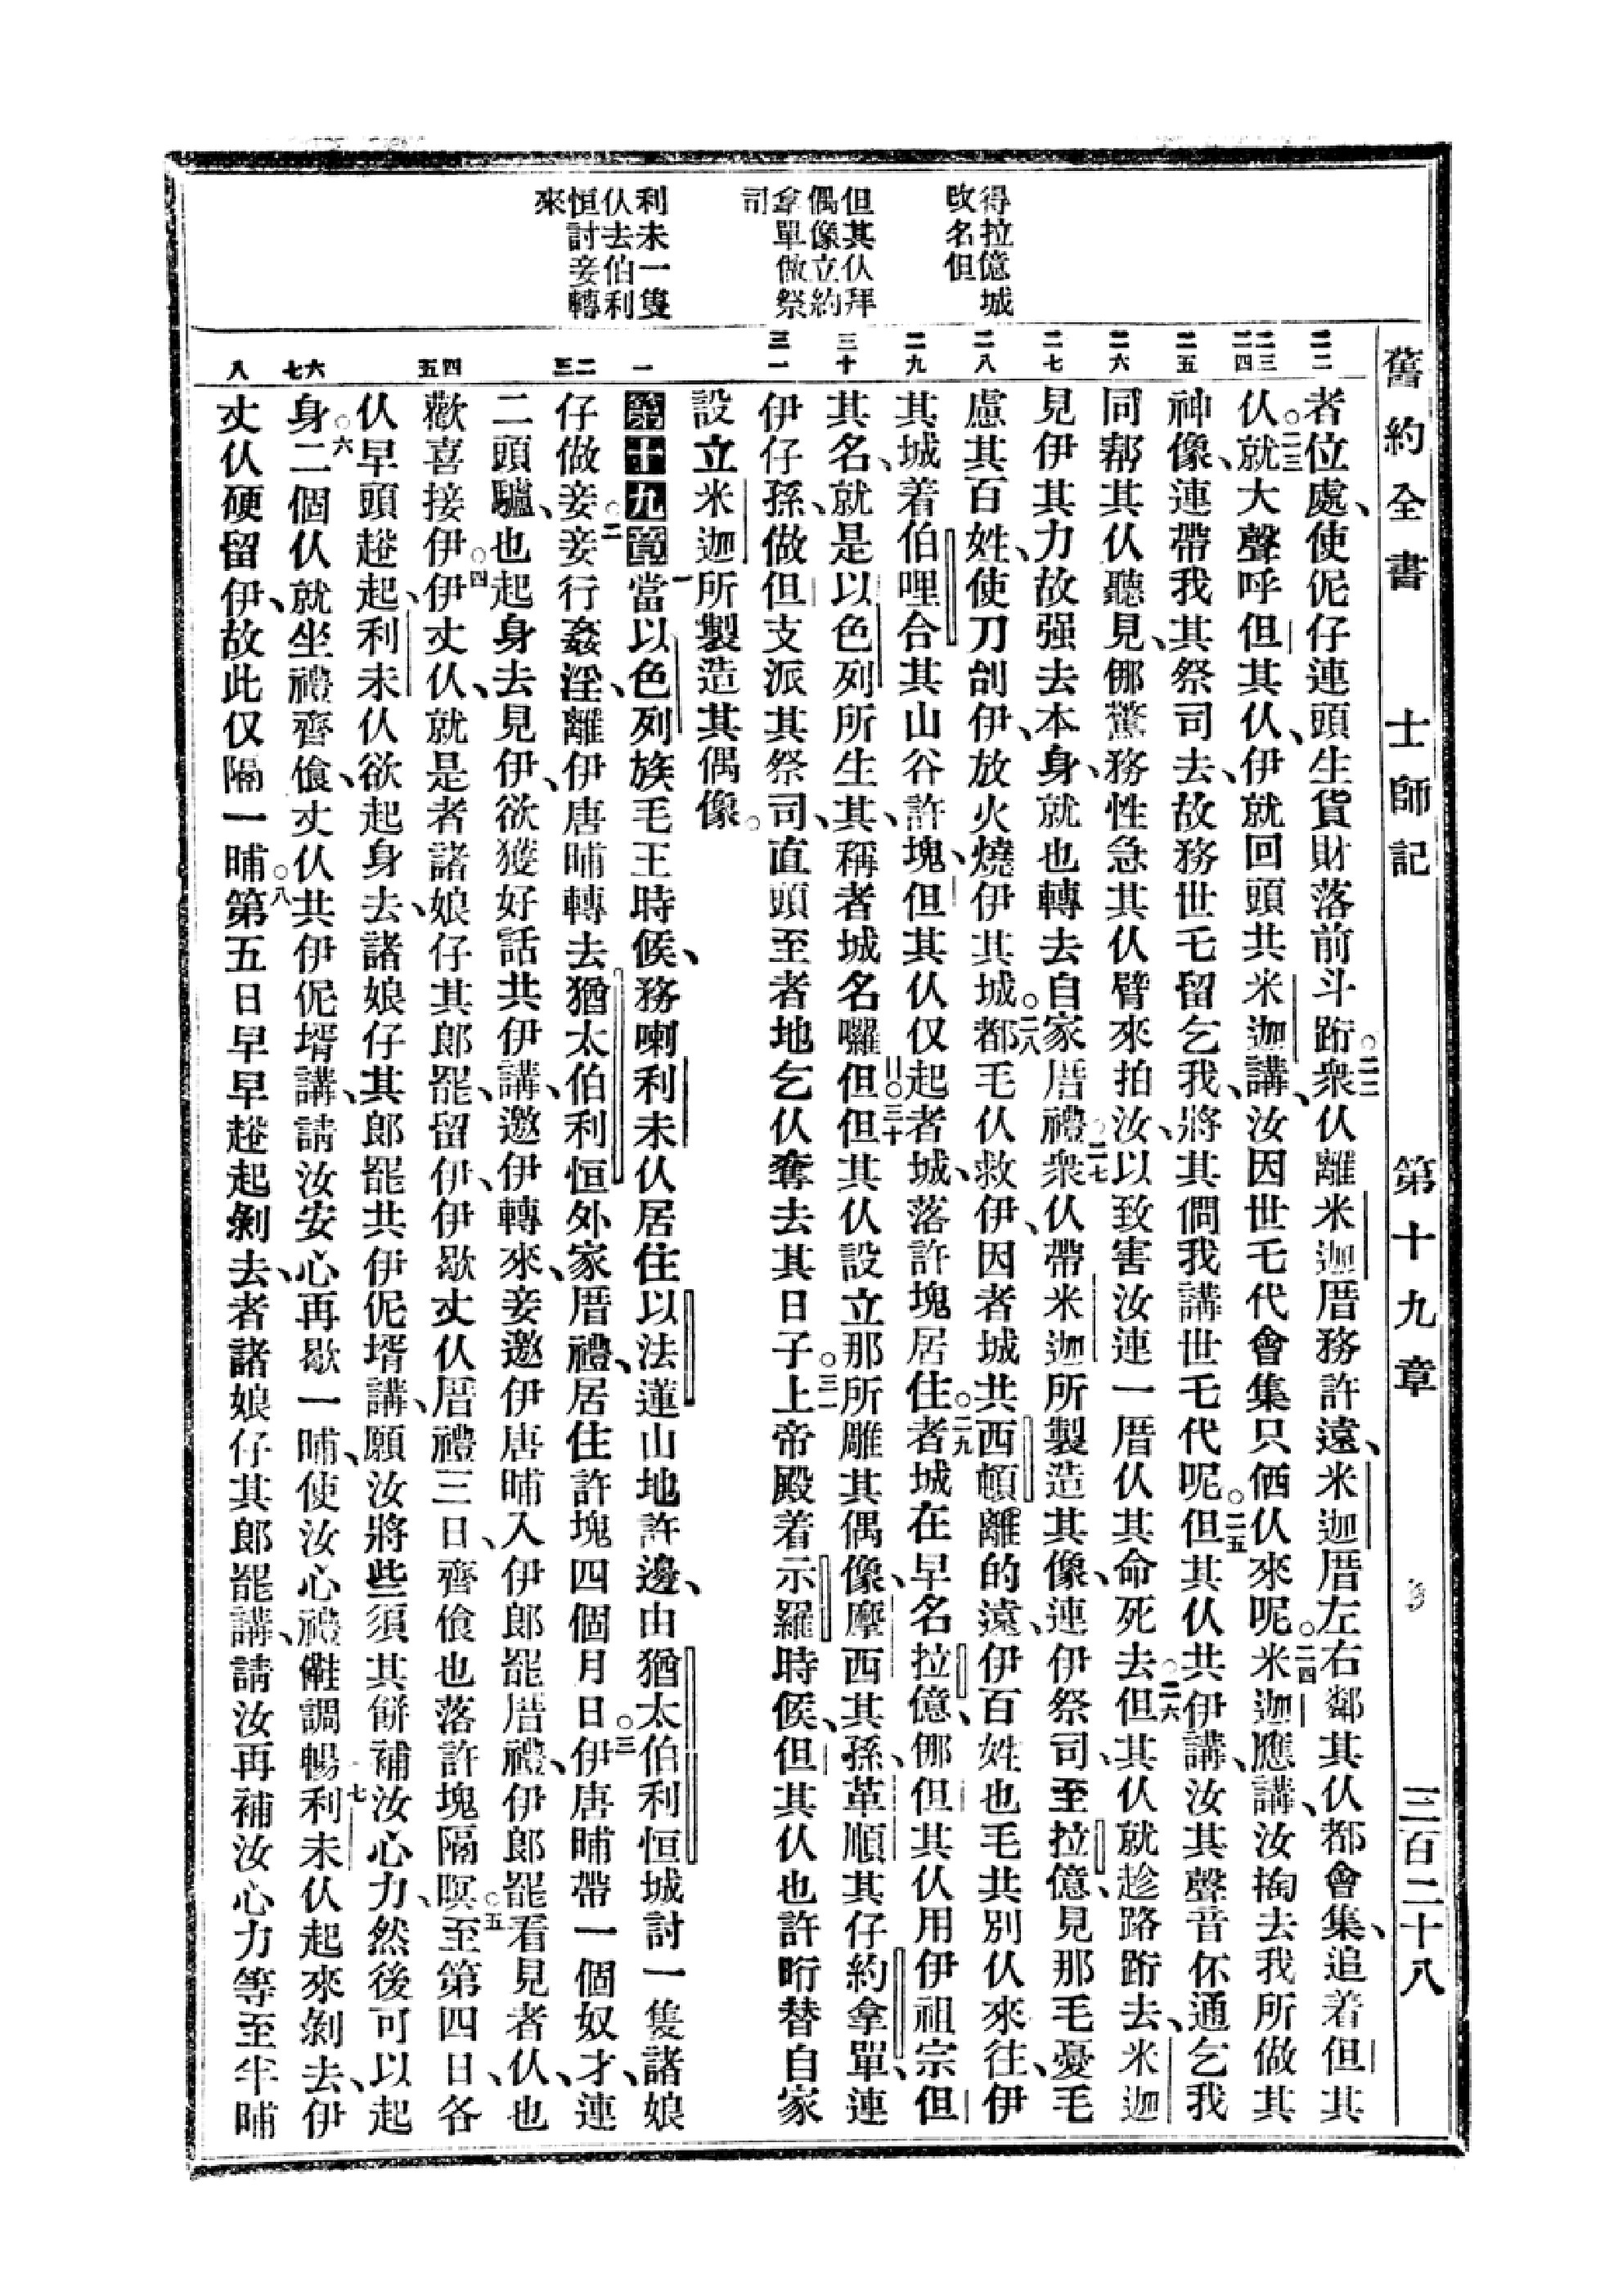 舊約全書　士師記　第十九章　三百二十八
得拉億城
改名但
但其仈拜
偶像立約
拿單做祭
司
利未一隻
仈去伯利
恒討妾轉
來
二二
二三
二四
二五
二六
二七
二八
二九
三十
三一
一
二
三
四
五
六
七
八
者位處、使伲仔連頭生貨財落前斗䟰○二二衆仈離米迦厝務許遠、米迦厝左右鄰其仈都會集、追着但其
仈○二三就大聲呼但其仈、伊就回頭共米迦講、汝因世乇代會集只㑚仈來呢○二四米迦應講、汝掏去我所做其
神像、連帶我其祭司去、故務世乇留乞我、將其倜我講世乇代呢○二五但其仈共伊講、汝其聲音伓通乞我
同幫其仈聽見、㑚驚務性急其仈臂來拍汝、以致害汝連一厝仈其命死去○二六但其仈就趁路䟰去、米迦
見伊其力故强去本身、就也轉去自家厝禮○二七衆仈帶米迦所製造其像、連伊祭司、至拉億、見那毛憂毛
慮其百姓、使刀刣伊、放火燒伊其城○二八都毛仈救伊、因者城共西頓離的遠、伊百姓也毛共別仈來往、伊
其城、着伯哩合其山谷、許塊、但其仈仅起者城、落許塊居住○二九者城在早名拉億、㑚但其仈用伊祖宗但
其名、就是以色列所生其、稱者城名囉但○三十但其仈設立那所雕其偶像、摩西其孫、革順其仔約拿單、連
伊仔孫、做但支派其祭司、直頭至者地乞仈奪去其日子○三一上帝殿着示羅時候、但其仈也許昕替自家
設立米迦所製造其偶像。
第十九章一當以色列族毛王時候、務喇利未仈居住以法蓮山地許邊、由猶太伯利恒城討一隻諸娘
仔做妾○二妾行姦淫、離伊唐晡轉去猶太伯利恒外家厝禮、居住許塊四個月日○三伊唐晡帶一個奴才、連
二頭驢、也起身去見伊、欲獲好話共伊講、邀伊轉來、妾邀伊唐晡入伊郎罷厝禮、伊郎罷看見者仈、也
歡喜接伊○四伊丈仈、就是者諸娘仔其郎罷、留伊、伊歇丈仈厝禮三日、齊飡也落許塊隔暝○五至第四日、各
仈早頭趖起、利未仈欲起身去、諸娘仔其郎罷共伊伲壻講、願汝將些須其餅補汝心力、然後可以起
身○六二個仈就坐禮齊飡、丈仈共伊伲壻講、請汝安心再歇一晡、使汝心禮㒕調暢○七利未仈起來剝去、伊
丈仈硬留伊、故此仅隔一晡○八第五日早早趖起剝去、者諸娘仔其郎罷講、請汝再補汝心力等至半晡